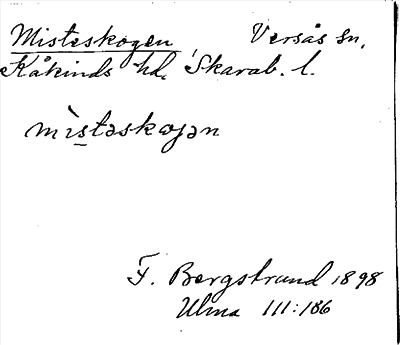 Misteskogen, Versås sn,
Kåkinds hd, Skarab. l.
mìstəskoɡən
F. Bergstrand 1898
Ulma 111:186